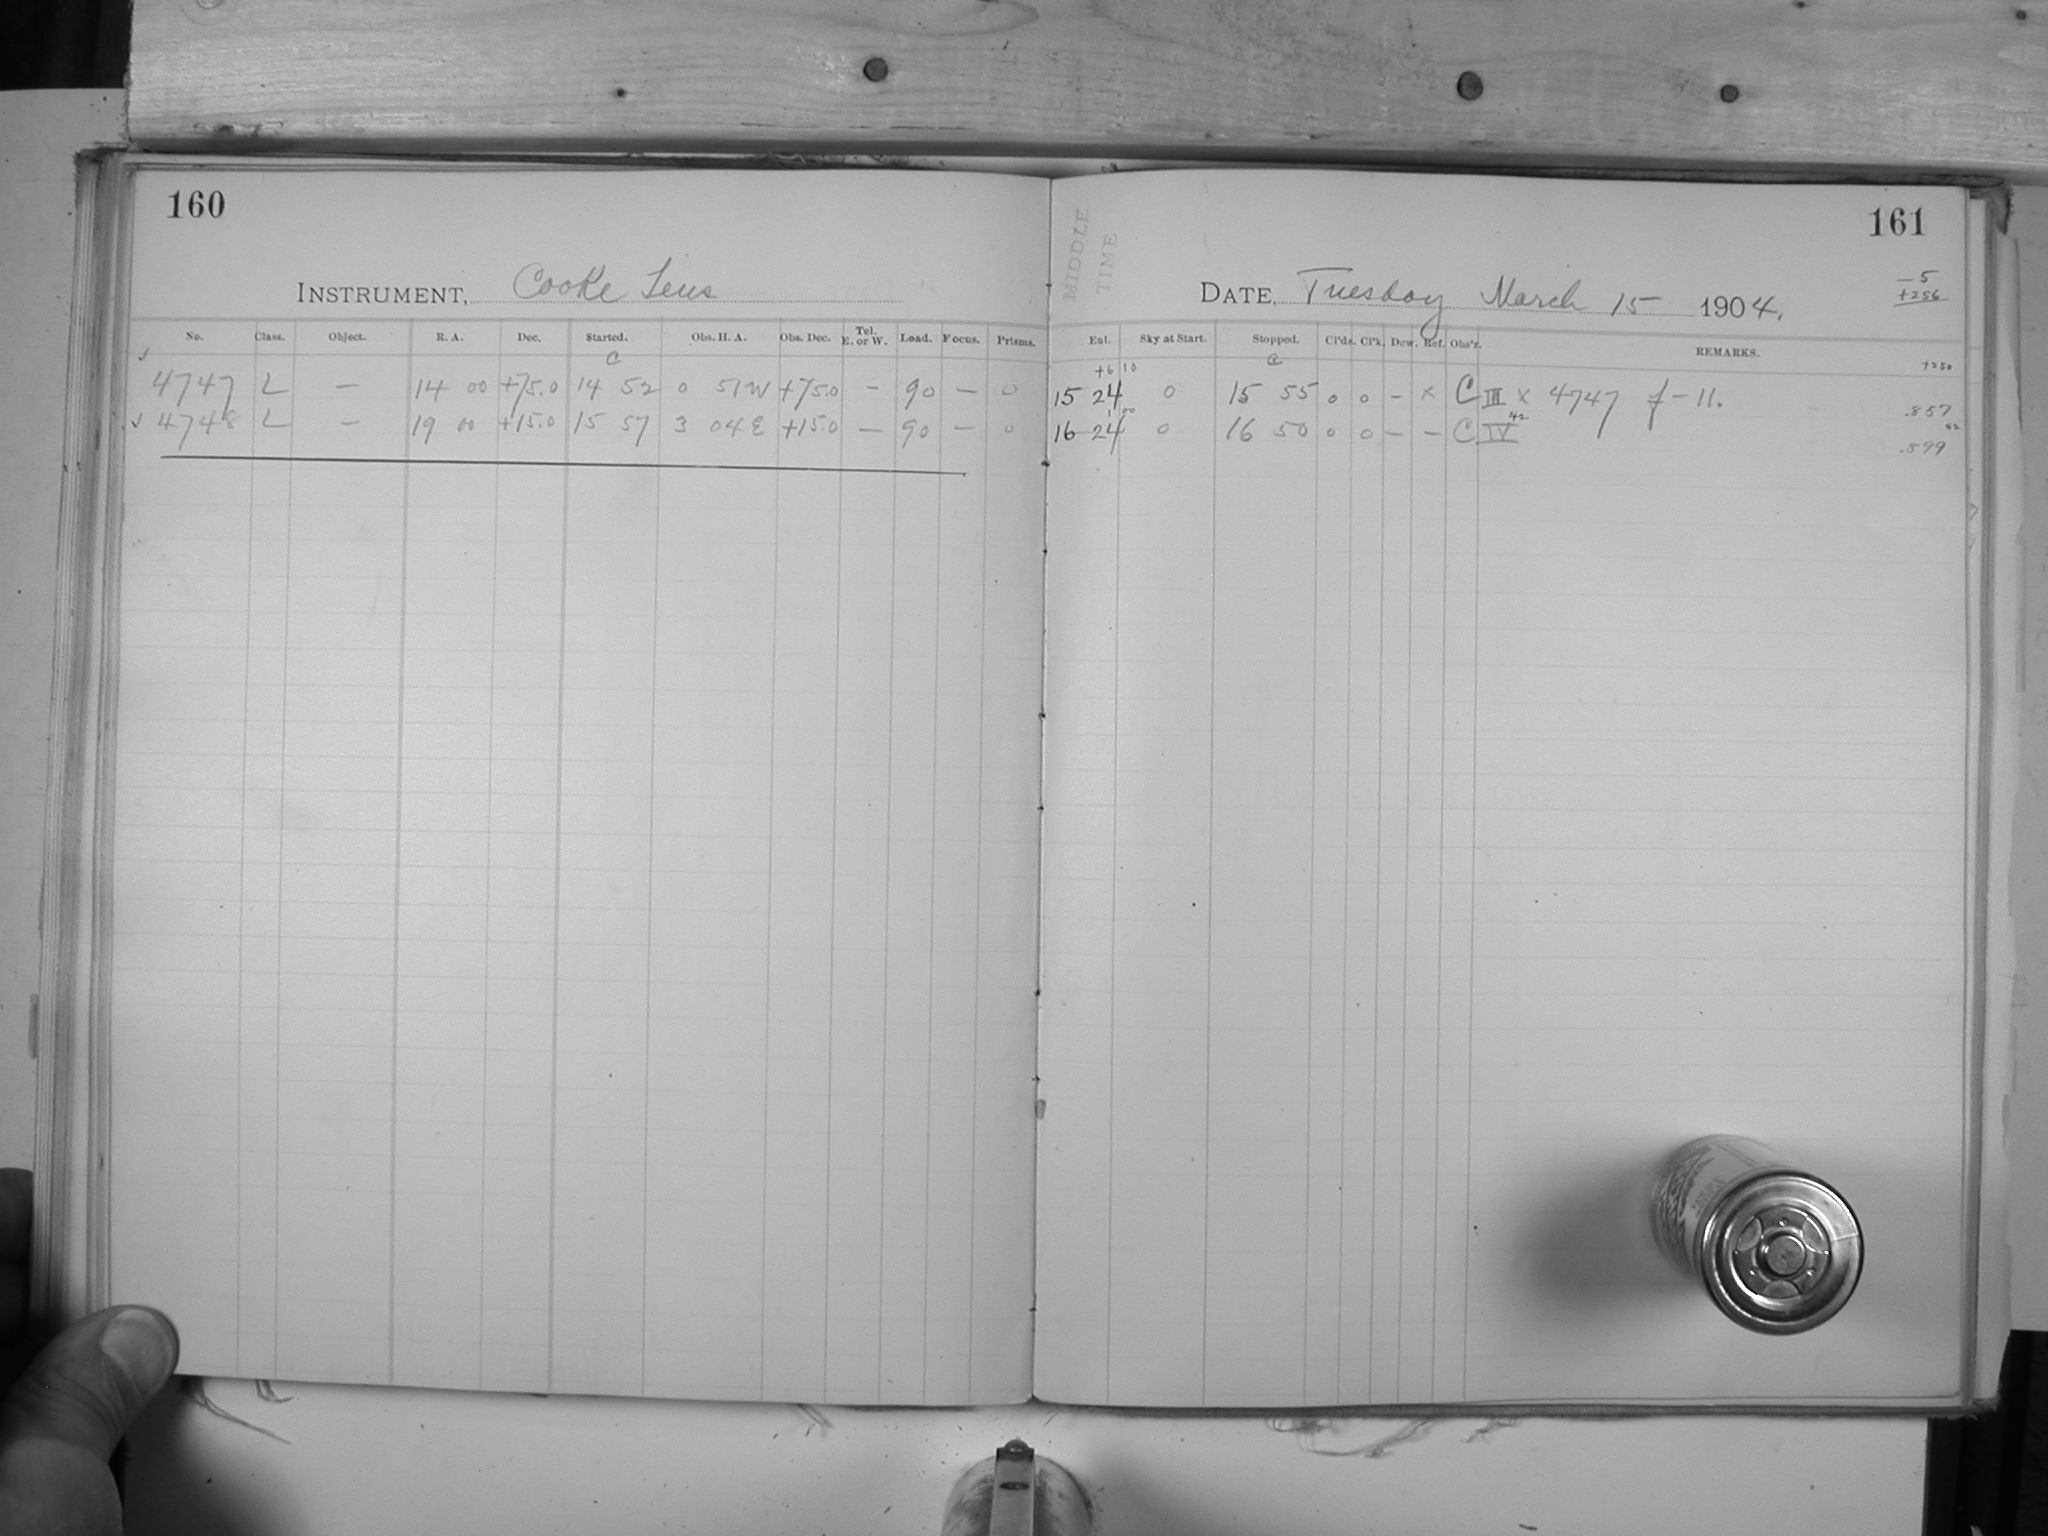 160
INSTRUMENT, Cooke Lens
No. Class. Object. R. A. Dec. Started. Obs. H. A. Obs. Dec. Tel. E. or W. Load. Focus. Prisms.
C
√ 4747 L — 14 00 +75.0 14 52 0 51W +75.0 — 90 — 0
√ 4748 L — 19 00 +15.0 15 57 3 04E +15.0 — 90 — 0
161
MIDDLE
TIME
DATE, Tuesday March 15 1904.
—5
+256
Ext. Sky at Start. Stopped. Cl'ds. Cl'k. Dew. Ref. Obs'r. REMARKS.
+6 10 C +250
15 24 0 15 55 0 0 — x C III x 4747 f-11. .857
16 24 0 16 50 0 0 — — C IV 42 .899